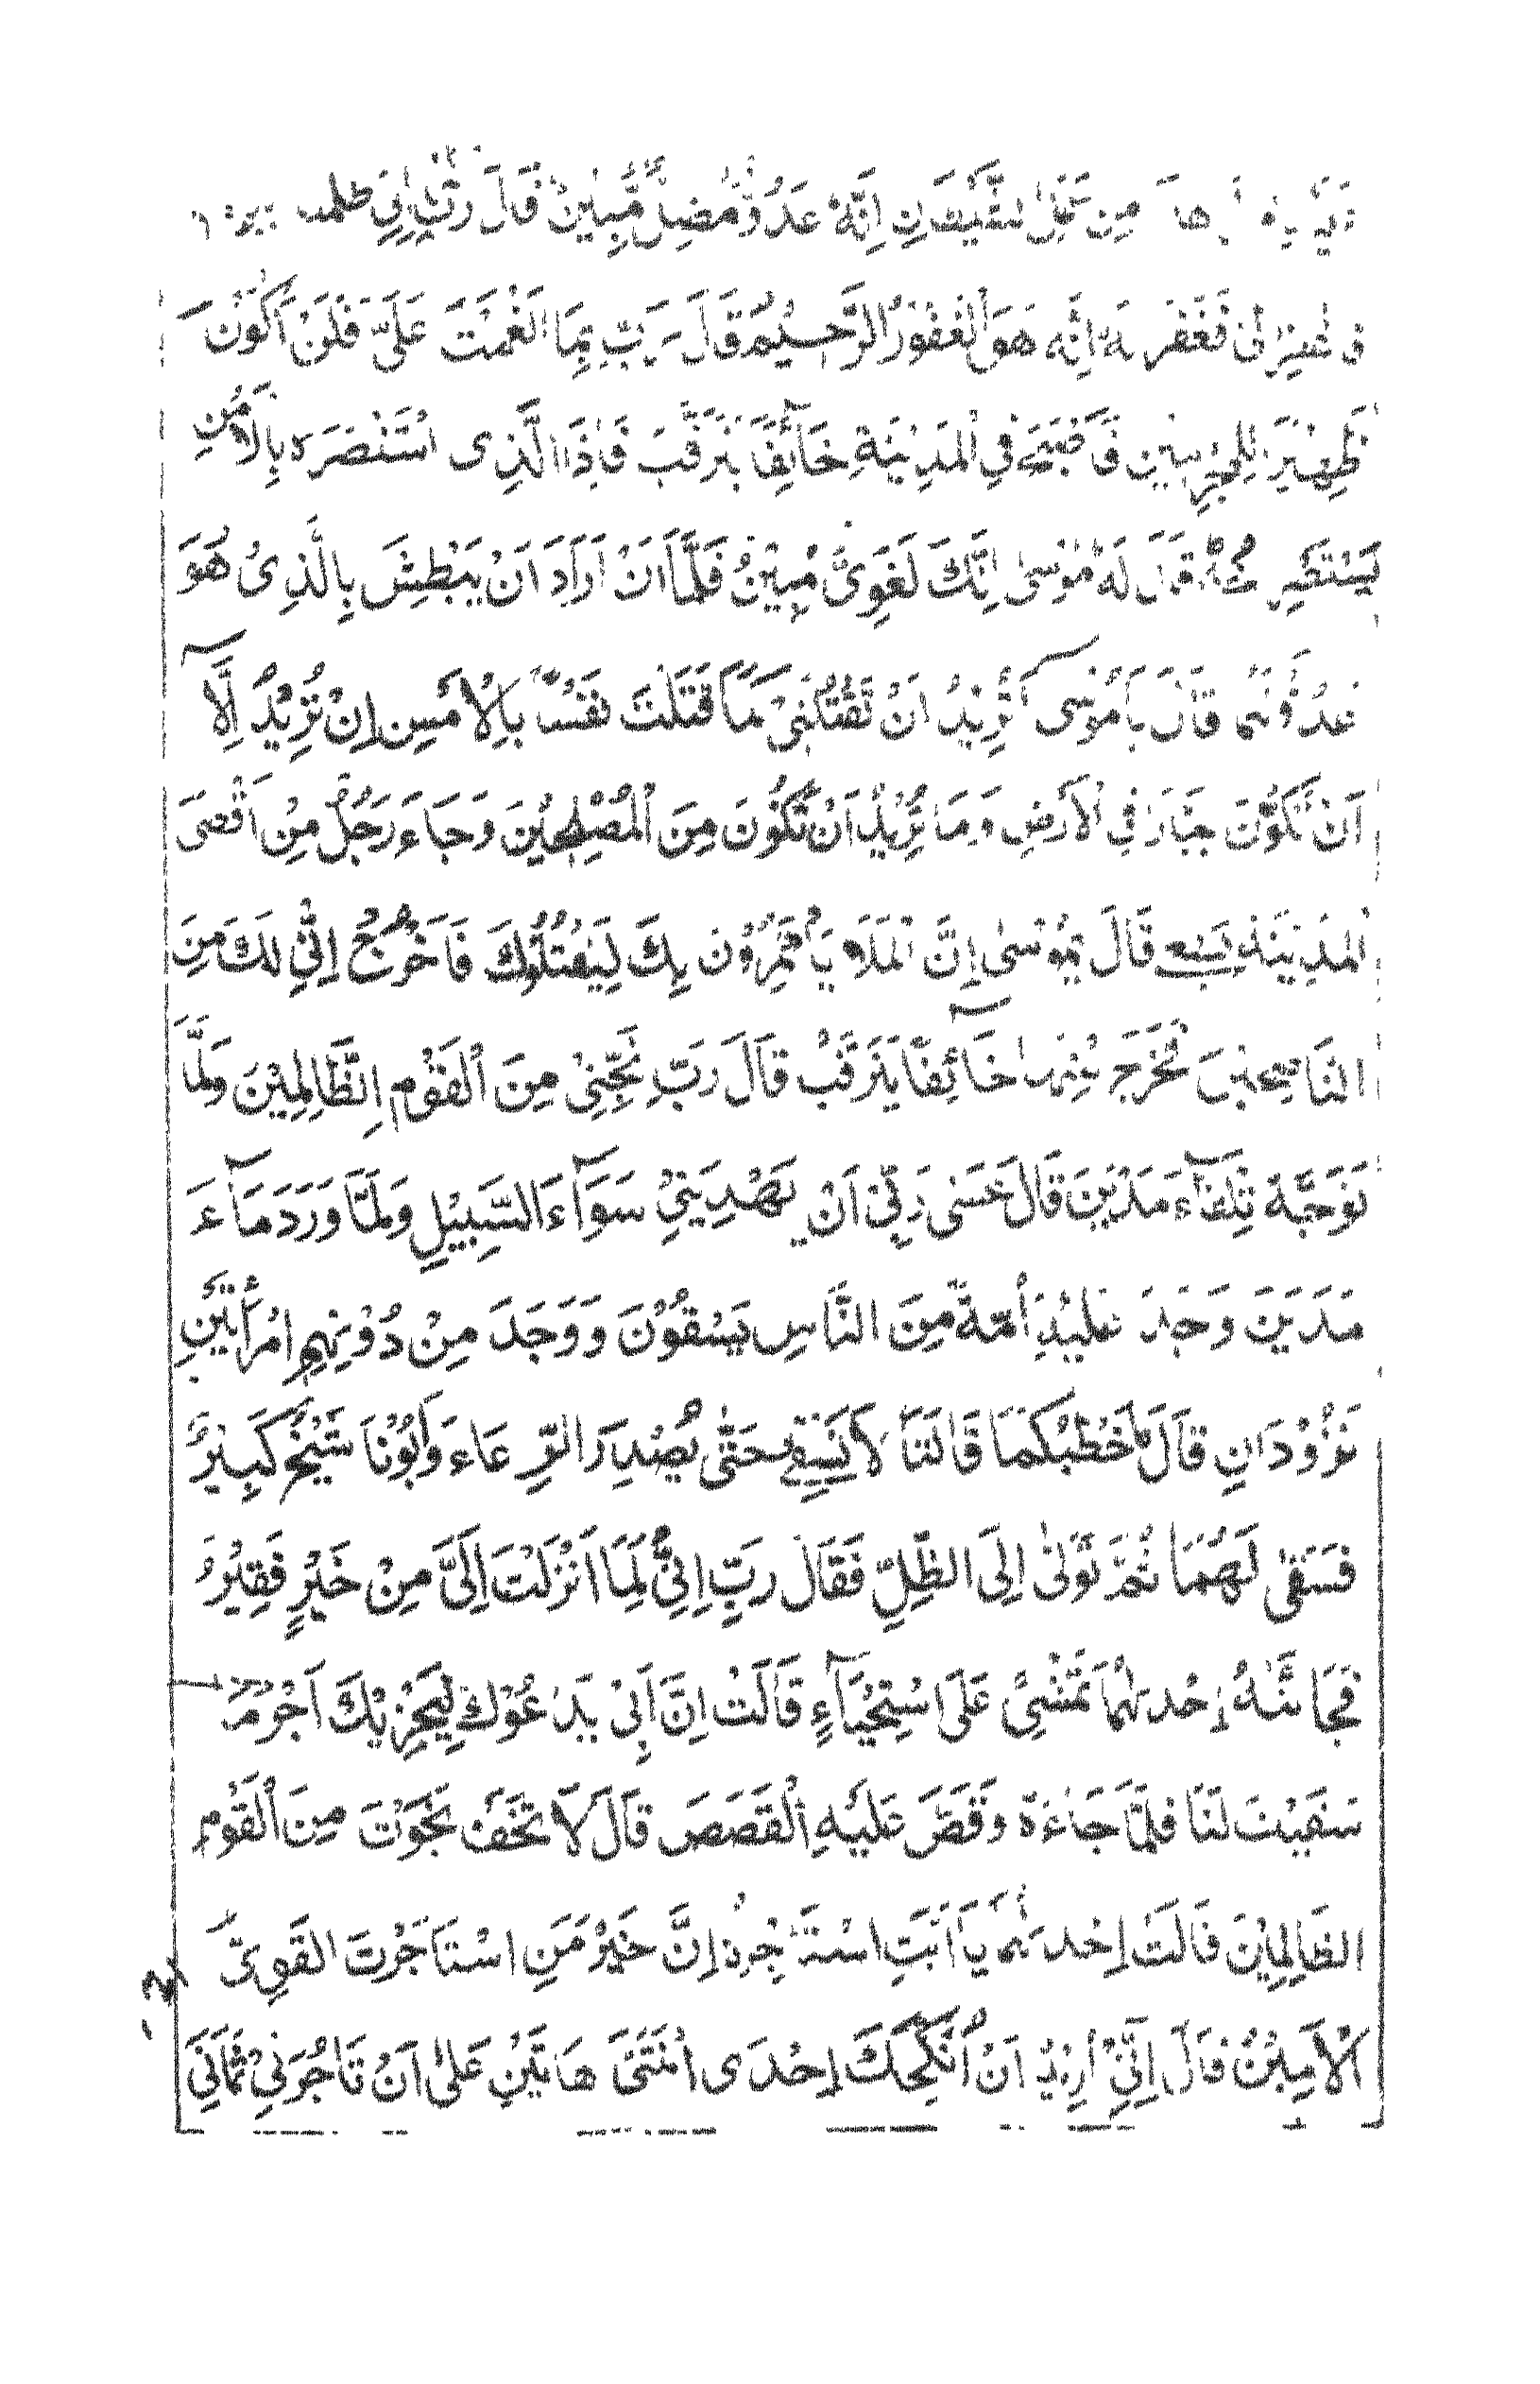 هذا مِنْ عَمَلِ الشَّيْطٰنِ اِنَّهٗ عَدُوٌّ مُّضِلٌّ مُّبِيْنٌ قَالَ رَبِّ اِنِّيْ ظَلَمْتُ
فَغَفَرَ لَهٗ اِنَّهٗ هُوَ الْغَفُوْرُ الرَّحِيْمُ قَالَ رَبِّ بِمَا اَنْعَمْتَ عَلَىَّ فَلَنْ اَكُوْنَ
ظَهِيْرًا لِلْمُجْرِمِيْنَ فَاَصْبَحَ فِي الْمَدِيْنَةِ خَآئِفًا يَتَرَقَّبُ فَاِذَا الَّذِى اسْتَنْصَرَهٗ بِالْاَمْسِ
يَسْتَصْرِخُهٗ قَالَ لَهٗ مُوْسٰى اِنَّكَ لَغَوِىٌّ مُبِيْنٌ فَلَمَّا اَنْ اَرَادَ اَنْ يَبْطِشَ بِالَّذِىْ هُوَ
عَدُوٌّ لَّهُمَا قَالَ يَامُوْسٰى اَتُرِيْدُ اَنْ تَقْتُلَنِىْ كَمَا قَتَلْتَ نَفْسًا بِالْاَمْسِ اِنْ تُرِيْدُ اِلَّآ
اَنْ تَكُوْنَ جَبَّارًا فِي الْاَرْضِ وَمَا تُرِيْدُ اَنْ تَكُوْنَ مِنَ الْمُصْلِحِيْنَ وَجَاءَ رَجُلٌ مِنْ اَقْصَى
الْمَدِيْنَةِ يَسْعٰى قَالَ يٰمُوْسٰى اِنَّ الْمَلَاَ يَاْتَمِرُوْنَ بِكَ لِيَقْتُلُوْكَ فَاخْرُجْ اِنِّيْ لَكَ مِنَ
النَّاصِحِيْنَ فَخَرَجَ مِنْهَا خَآئِفًا يَتَرَقَّبُ قَالَ رَبِّ نَجِّنِيْ مِنَ الْقَوْمِ الظَّالِمِيْنَ وَلَمَّا
تَوَجَّهَ تِلْقَآءَ مَدْيَنَ قَالَ عَسٰى رَبِّيْ اَنْ يَهْدِيَنِيْ سَوَآءَ السَّبِيْلِ وَلَمَّا وَرَدَ مَآءَ
مَدْيَنَ وَجَدَ عَلَيْهِ اُمَّةً مِنَ النَّاسِ يَسْقُوْنَ وَوَجَدَ مِنْ دُوْنِهِمِ امْرَأَتَيْنِ
تَذُوْدَانِ قَالَ مَا خَطْبُكُمَا قَالَتَا لَا نَسْقِيْ حَتّٰى يُصْدِرَ الرِّعَاءُ وَاَبُوْنَا شَيْخٌ كَبِيْرٌ
فَسَقٰى لَهُمَا ثُمَّ تَوَلّٰى اِلَى الظِّلِّ فَقَالَ رَبِّ اِنِّيْ لِمَا اَنْزَلْتَ اِلَىَّ مِنْ خَيْرٍ فَقِيْرٌ
فَجَائَتْهُ اِحْدٰىهُمَا تَمْشِيْ عَلَى اسْتِحْيَآءٍ قَالَتْ اِنَّ اَبِيْ يَدْعُوْكَ لِيَجْزِيَكَ اَجْرَ مَا
سَقَيْتَ لَنَا فَلَمَّا جَاءَهٗ وَقَصَّ عَلَيْهِ الْقَصَصَ قَالَ لَا تَخَفْ نَجَوْتَ مِنَ الْقَوْمِ
الظَّالِمِيْنَ قَالَتْ اِحْدٰىهُمَا يَااَبَتِ اسْتَأْجِرْهُ اِنَّ خَيْرَ مَنِ اسْتَاْجَرْتَ الْقَوِىُّ
الْاَمِيْنُ قَالَ اِنِّيْ اُرِيْدُ اَنْ اُنْكِحَكَ اِحْدَى ابْنَتَىَّ هَاتَيْنِ عَلٰى اَنْ تَاْجُرَنِيْ ثَمَانِيَ